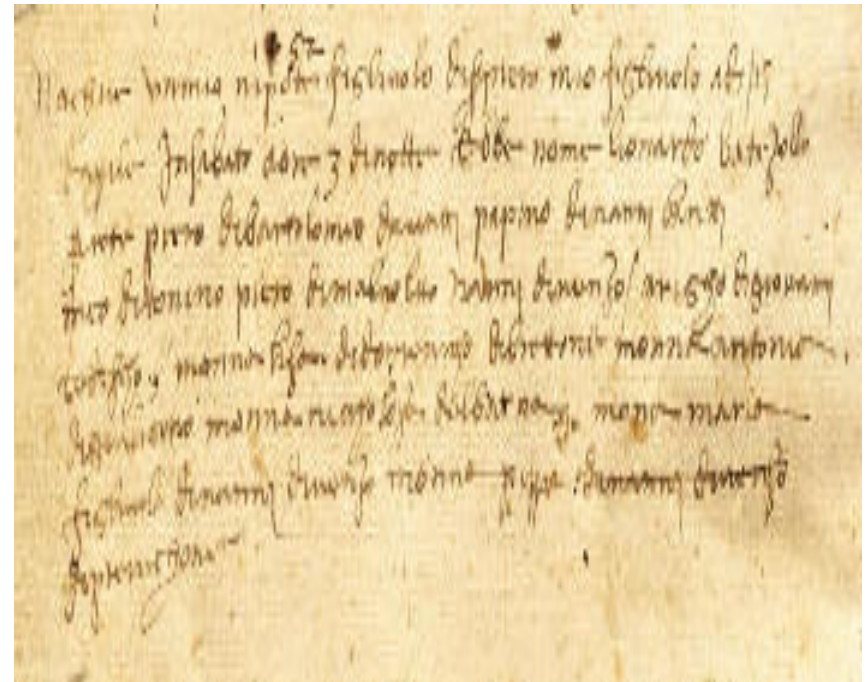 52
Nacque un mio nipote figliuolo di ser piero mio figliuolo a dì 15
daprile in sabato a ore 3 di notte ebbe nome lionardo batizollo
prete piero di bartolomeo papino di nanni banti
meo di tonino piero di malvolto nanni di venzo arigho di giovanni
tedescho monna lisa di domenicho di brettone monna antonia
di giuliano monna niccholosa del barna mona maria
figliuola di nanni di venzo monna pippa di nanni di venzo
di previchone